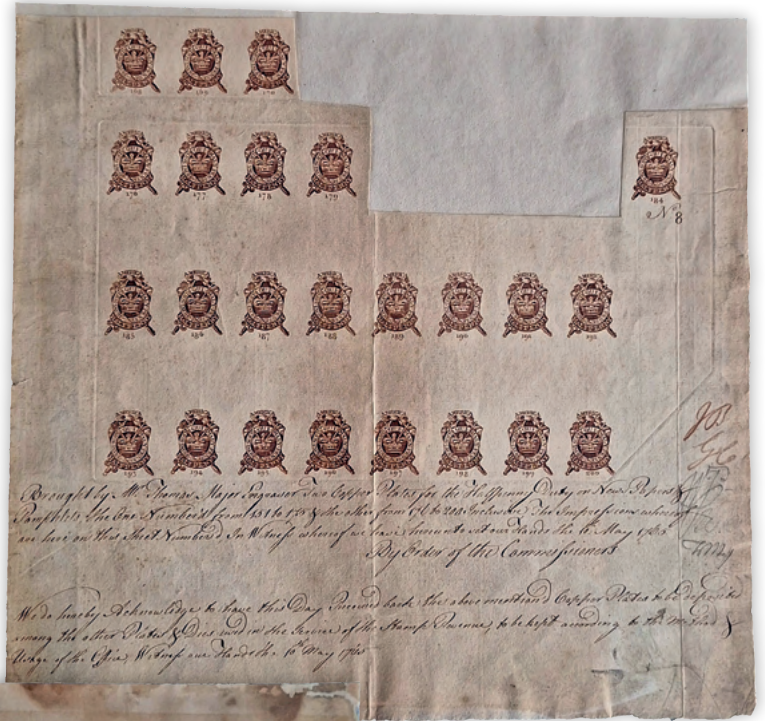 168 169 170
176 177 178 179 184
No. 8
185 186 187 188 189 190 191 192
193 194 195 196 197 198 199 200
Brought by Mr. Thomas Major Engraver Two Copper Plates for the Halfpenny Duty on News Papers &
Pamphlets, the One Number'd from 151 to 175 & the other from 176 to 200 Inclusive. The Impressions whereof
are here on this Sheet Number'd. In Witness whereof we have hereunto set our Hands the 6th May 1765
By Order of the Commissioners
We do hereby Acknowledge to have this Day Received back the above mention'd Copper Plates to be deposited
among the other Plates & Dies used in the Service of the Stamp Revenue, to be kept according to the Method &
Usage of the Office, Witness our Hands the 6th May 1765